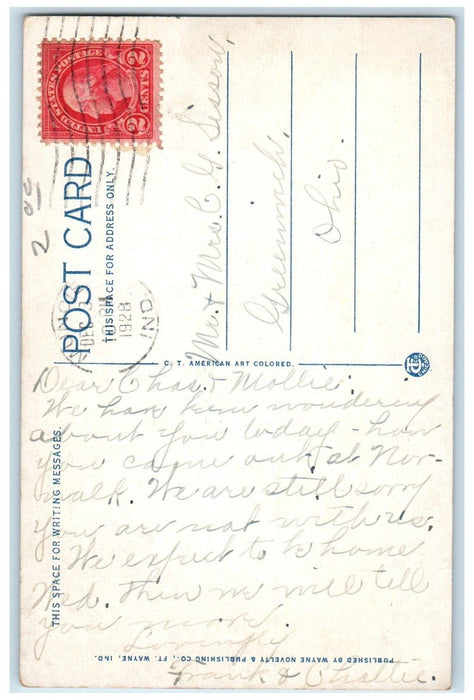 UNITED STATES POSTAGE
2 CENTS 2
2 00
POST CARD
THIS SPACE FOR ADDRESS ONLY.
DEC
10
1928
IND.
Mr. & Mrs. C. G. Sisson,
Greenwich,
Ohio.
C. T. AMERICAN ART COLORED.
THIS SPACE FOR WRITING MESSAGES.
Dear Chas. & Mollie:
We have been wondering
about you today - how
you came out at Nor-
walk. We are still sorry
you are not with us.
We expect to be home
Wed. then we will tell
you more.
Lovingly
Frank &
PUBLISHED BY WAYNE NOVELTY & PUBLISHING CO., FT. WAYNE, IND.